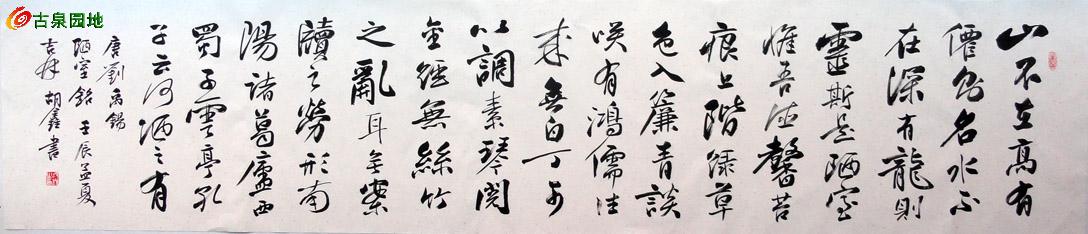 山不在高有
僊則名水不
在深有龍則
靈斯是陋室
惟吾德馨苔
痕上階緑草
色入簾青談
咲有鴻儒往
来無白丁可
以調素琴閲
金經無絲竹
之亂耳無案
牘之勞形南
陽諸葛廬西
蜀子雲亭孔
子云何陋之有
唐劉禹錫
陋室銘 壬辰孟夏
吉林 胡鑫書
古泉园地